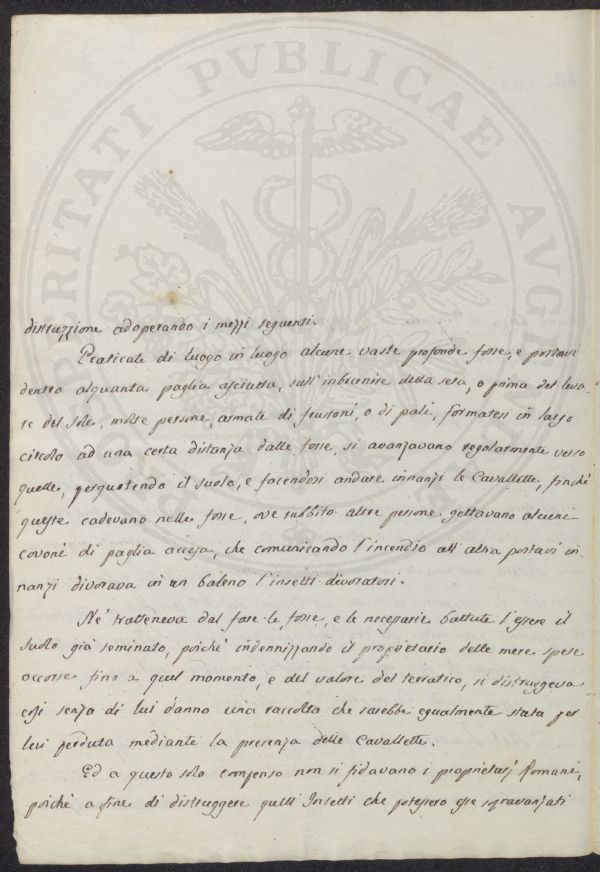 distruzzione adoperando i mezzi seguenti.
Praticate di luogo in luogo alcune vaste profonde fosse, e portavi
dentro alquanta paglia asciutta, sull'inbrunire della sera, o prima del leva-
re del sole, molte persone armate di frustoni, o di pali, formatesi in largo
circolo ad una certa distanza dalle fosse, si avanzavano regolarmente verso
quelle, perquotendo il suolo, e facendosi andare innanzi le Cavallette, finchè
queste cadevano nelle fosse, ove subbito altre persone gettavano alcuni
covoni di paglia accesa, che comunicando l'incendio all'altra portavi in-
nanzi divorava in un baleno l'insetti divoratori.
Nè tratteneva dal fare le fosse, e le necessarie battute l'essere il
suolo già seminato, poichè indennizzando il proprietario delle mere spese
occorse fino a quel momento, e del valore del terratico, si distruggeva
così senza di lui danno una raccolta che sarebbe egualmente stata per
lui perduta mediante la presenza delle Cavallette.
Ed a questo solo compenso non si fidavano i proprietarj Romani,
poichè a fine di distruggere quelli Insetti che potessero esse sopravanzati
PVBLICAE